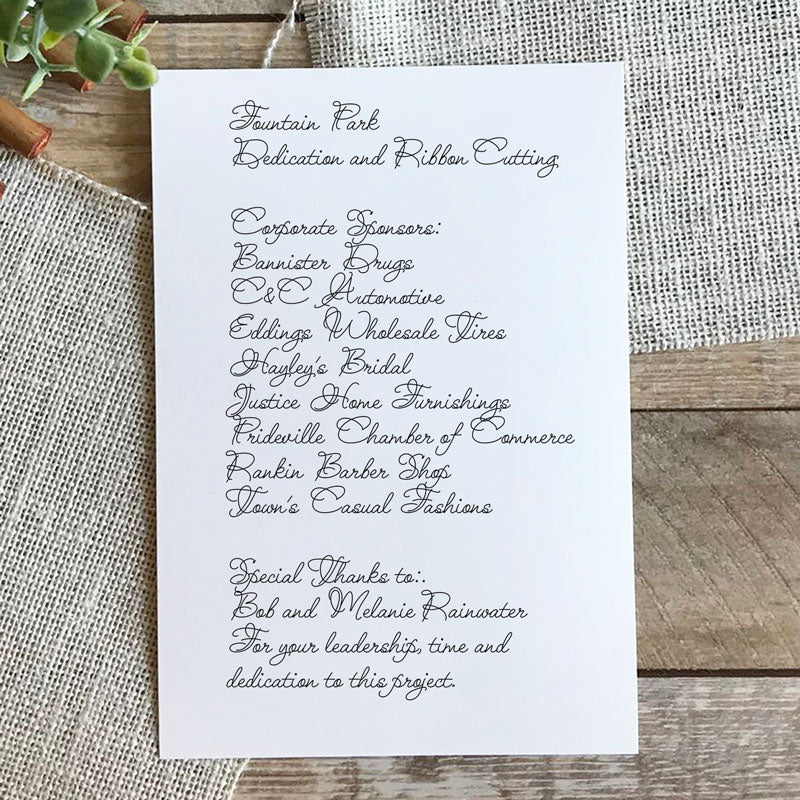 Fountain Park
Dedication and Ribbon Cutting
Corporate Sponsors:
Bannister Drugs
C&C Automotive
Eddings Wholesale Tires
Hayley's Bridal
Justice Home Furnishings
Prideville Chamber of Commerce
Rankin Barber Shop
Town's Casual Fashions
Special Thanks to:.
Bob and Melanie Rainwater
For your leadership, time and
dedication to this project.